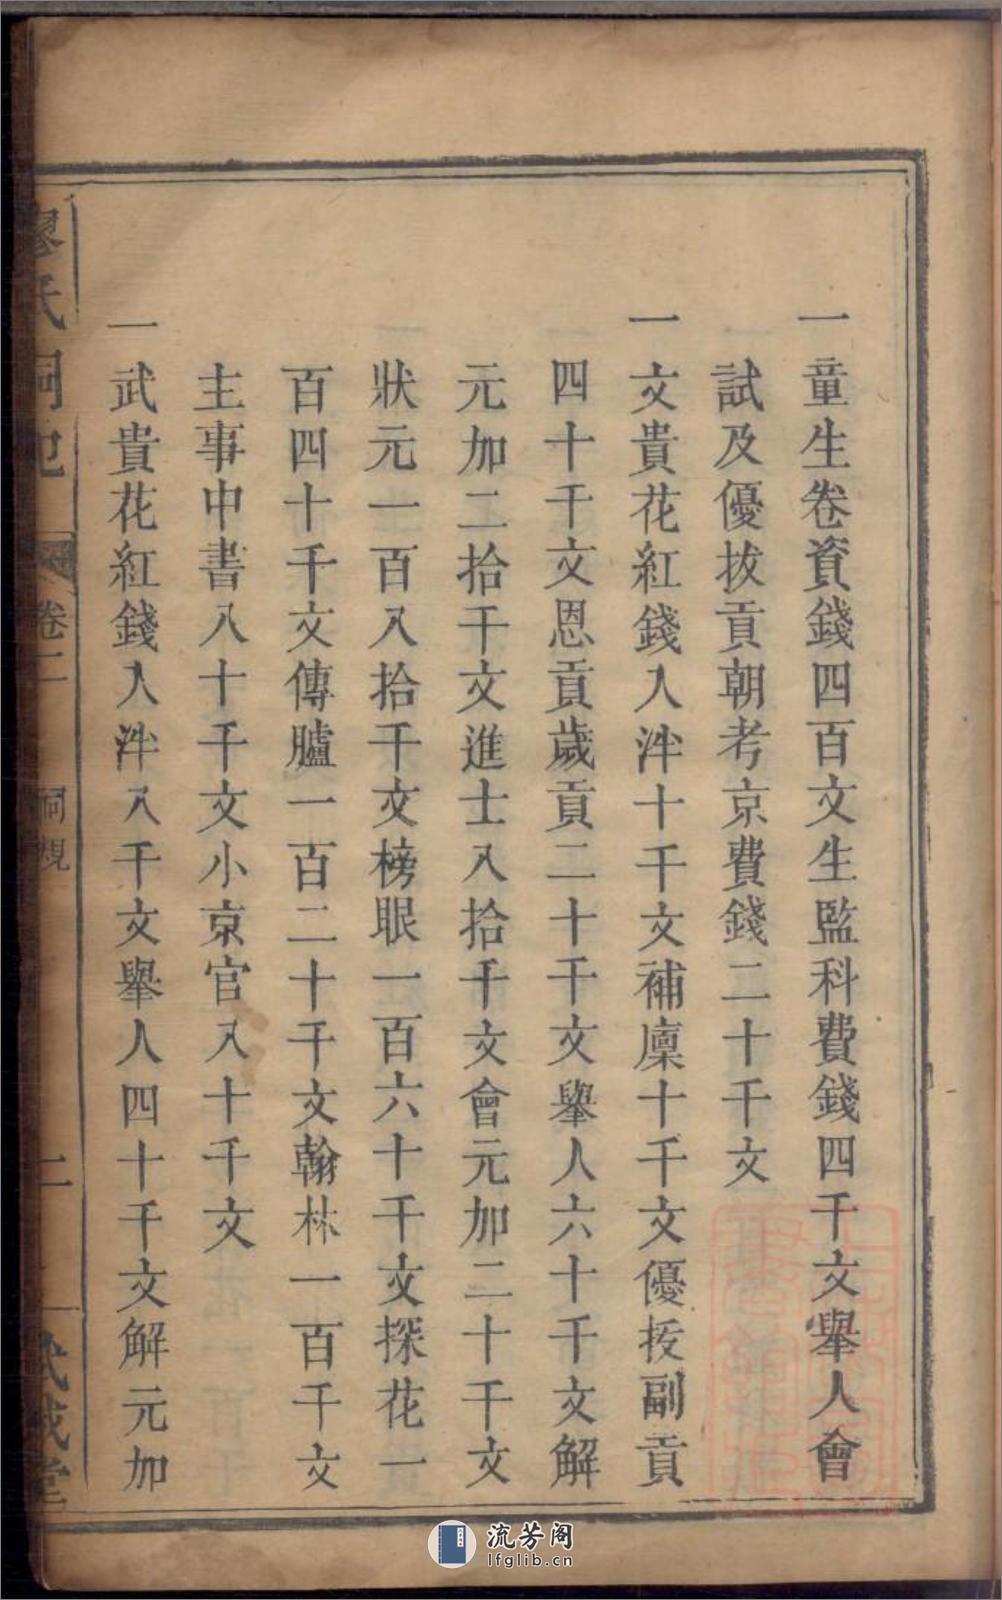 一童生卷資錢四百文生監科費錢四千文舉人會
試及優拔貢朝考京費錢二十千文
一文貴花紅錢入泮十千文補廩十千文優拔副貢
四十千文恩貢歲貢二十千文舉人六十千文解
元加二拾千文進士八拾千文會元加二十千文
狀元一百八拾千文榜眼一百六十千文探花一
百四十千文傳臚一百二十千文翰林一百千文
主事中書八十千文小京官八十千文
一武貴花紅錢入泮八千文舉人四十千文解元加
廖氏祠記 卷二 祠規 二 武威堂
流芳阁
lfglib.cn